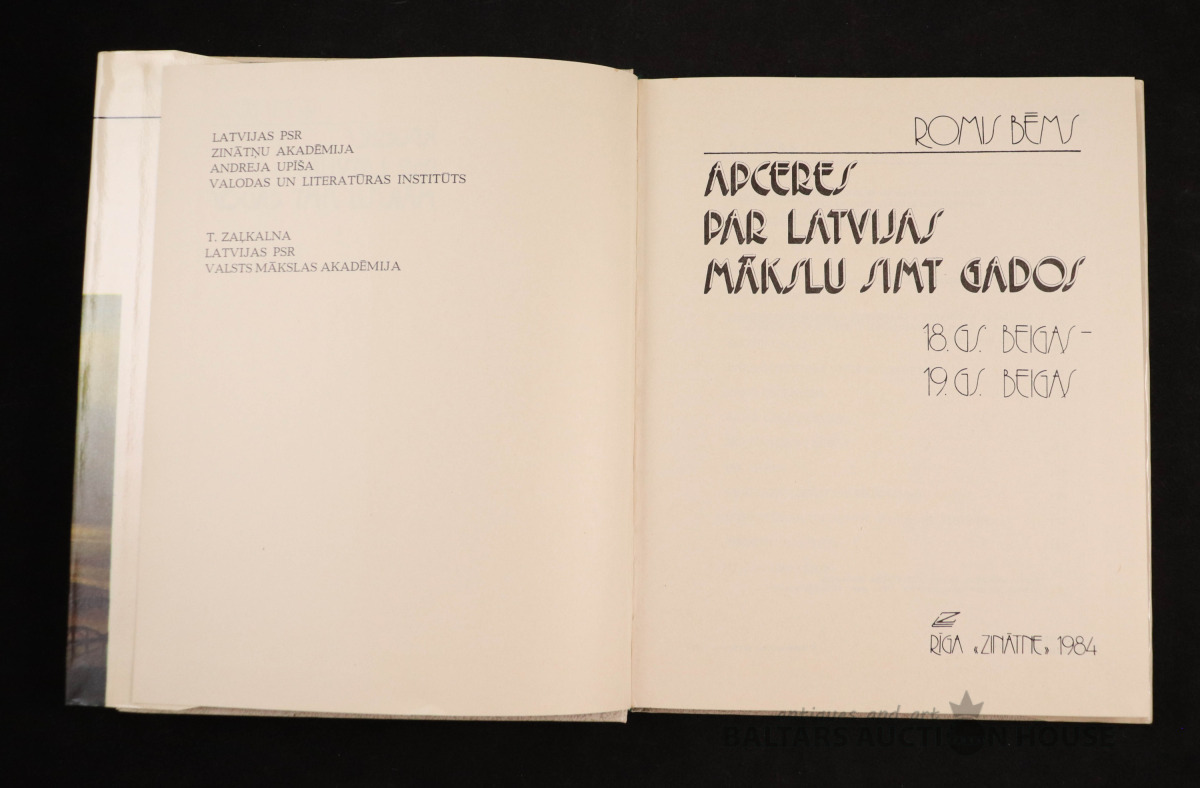 LATVIJAS PSR
ZINĀTŅU AKADĒMIJA
ANDREJA UPĪŠA
VALODAS UN LITERATŪRAS INSTITŪTS
T. ZAĻKALNA
LATVIJAS PSR
VALSTS MĀKSLAS AKADĒMIJA
ROMIS BĒMS
APCERES
PAR LATVIJAS
MĀKSLU SIMT GADOS
18. GS. BEIGAS –
19. GS. BEIGAS
Z
RĪGA «ZINĀTNE» 1984
antiques and art
BALTARS AUCTION HOUSE